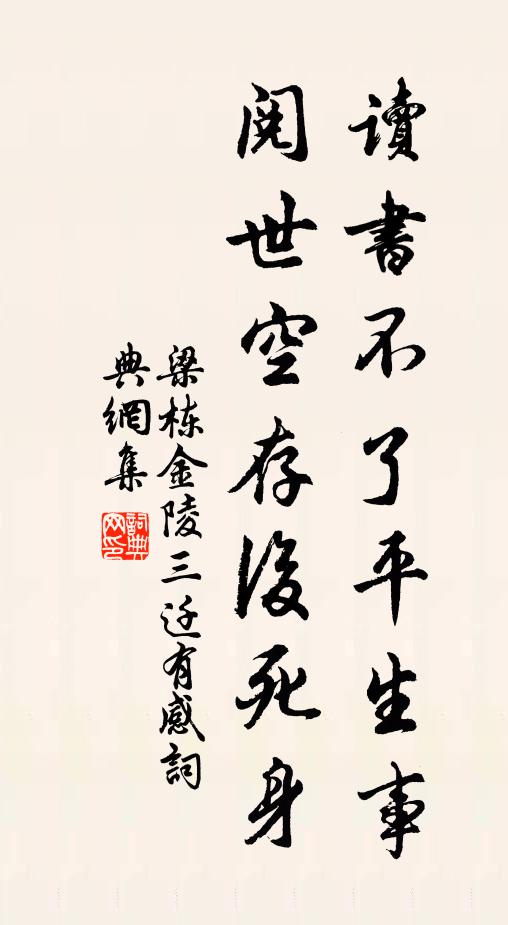 讀書不了平生事
閱世空存後死身
梁栋金陵三迁有感詞
典網集
詞典網印